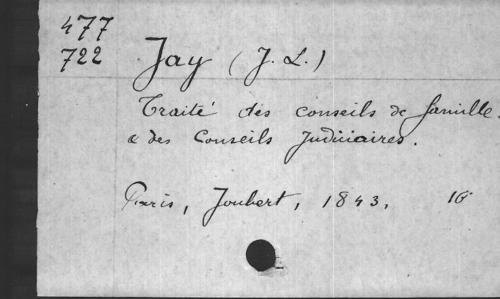 477
722
Jay (J. L.)
Traité des conseils de famille.
& des Conseils Judiciaires.
Paris, Joubert, 1843,